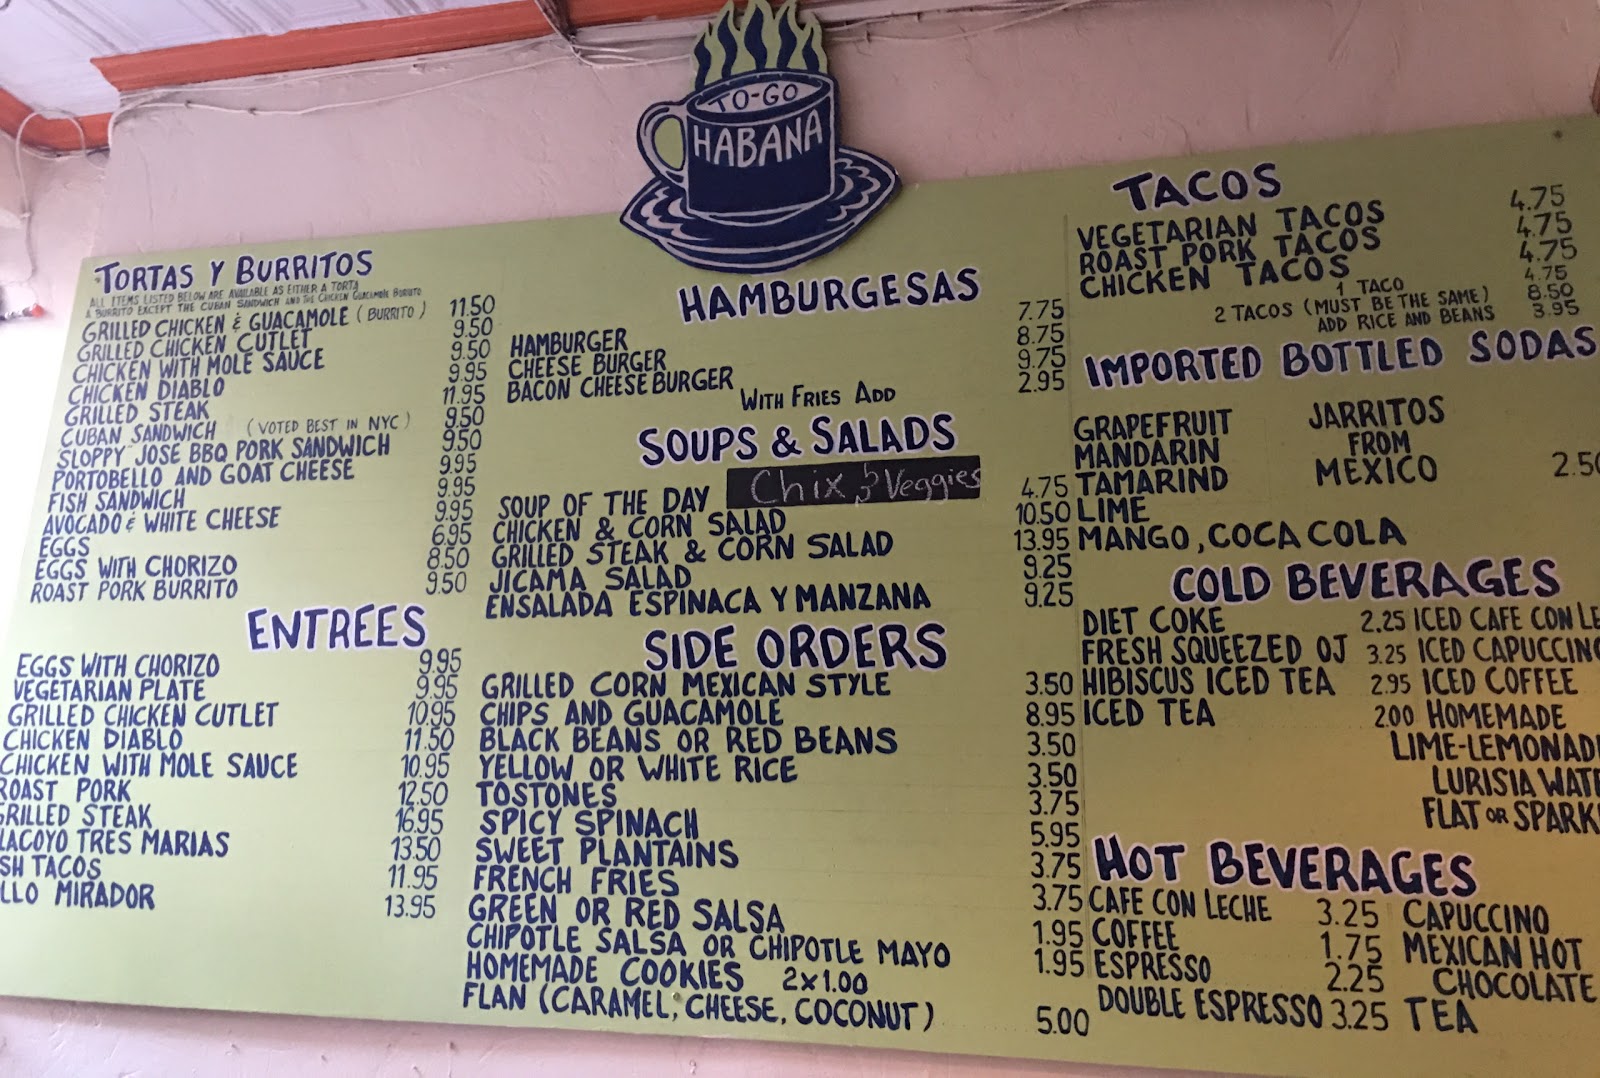 TO-GO
HABANA
TORTAS Y BURRITOS
ALL ITEMS LISTED BELOW ARE AVAILABLE AS EITHER A TORTA
A BURRITO EXCEPT THE CUBAN SANDWICH AND THE CHICKEN GUACAMOLE BURRITO
GRILLED CHICKEN & GUACAMOLE (BURRITO) 11.50
GRILLED CHICKEN CUTLET 9.50
CHICKEN WITH MOLE SAUCE 9.50
CHICKEN DIABLO 9.95
GRILLED STEAK 11.95
CUBAN SANDWICH (VOTED BEST IN NYC) 9.50
SLOPPY JOSE BBQ PORK SANDWICH 9.50
PORTOBELLO AND GOAT CHEESE 9.95
FISH SANDWICH 9.95
AVOCADO & WHITE CHEESE 9.95
EGGS 6.95
EGGS WITH CHORIZO 8.50
ROAST PORK BURRITO 9.50
ENTREES
EGGS WITH CHORIZO 9.95
VEGETARIAN PLATE 9.95
GRILLED CHICKEN CUTLET 10.95
CHICKEN DIABLO 11.50
CHICKEN WITH MOLE SAUCE 10.95
ROAST PORK 12.50
GRILLED STEAK 16.95
LACOYO TRES MARIAS 13.50
SH TACOS 11.95
LLO MIRADOR 13.95
HAMBURGESAS
HAMBURGER 7.75
CHEESE BURGER 8.75
BACON CHEESEBURGER 9.75
WITH FRIES ADD 2.95
SOUPS & SALADS
SOUP OF THE DAY Chix & Veggies 4.75
CHICKEN & CORN SALAD 10.50
GRILLED STEAK & CORN SALAD 13.95
JICAMA SALAD 9.25
ENSALADA ESPINACA Y MANZANA 9.25
SIDE ORDERS
GRILLED CORN MEXICAN STYLE 3.50
CHIPS AND GUACAMOLE 8.95
BLACK BEANS OR RED BEANS 3.50
YELLOW OR WHITE RICE 3.50
TOSTONES 3.75
SPICY SPINACH 5.95
SWEET PLANTAINS 3.75
FRENCH FRIES 3.75
GREEN OR RED SALSA 1.95
CHIPOTLE SALSA OR CHIPOTLE MAYO 1.95
HOMEMADE COOKIES 2x1.00
FLAN (CARAMEL, CHEESE, COCONUT) 5.00
TACOS
VEGETARIAN TACOS 4.75
ROAST PORK TACOS 4.75
CHICKEN TACOS 4.75
1 TACO 4.75
2 TACOS (MUST BE THE SAME) 8.50
ADD RICE AND BEANS 3.95
IMPORTED BOTTLED SODAS
GRAPEFRUIT JARRITOS
MANDARIN FROM
TAMARIND MEXICO 2.50
LIME
MANGO, COCA COLA
COLD BEVERAGES
DIET COKE 2.25 ICED CAFE CON LE
FRESH SQUEEZED OJ 3.25 ICED CAPUCCINO
HIBISCUS ICED TEA 2.95 ICED COFFEE
ICED TEA 2.00 HOMEMADE
LIME-LEMONAD
LURISIA WAT
FLAT OR SPARK
HOT BEVERAGES
CAFE CON LECHE 3.25 CAPUCCINO
COFFEE 1.75 MEXICAN HOT
ESPRESSO 2.25 CHOCOLATE
DOUBLE ESPRESSO 3.25 TEA